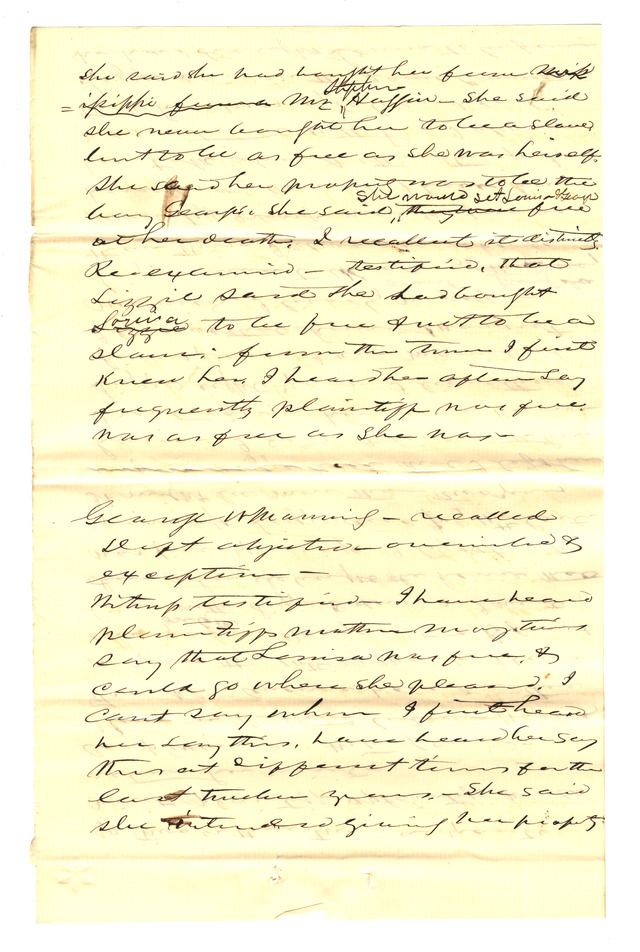 she said she had bought her from Miss
issippi from a Mr Stephen Haffin – she said
she never bought her to be a slave
but to be as free as she was herself.
She said her property was to be the
boy George's. She said, they were she would set Louisa & George free
at her death. I recollect it distinctly
Reexamined – testified, that
Lizzie said she had bought
Lizzie Louisa to be free & not to be a
slave; from the time I first
knew her. I heard her often say
frequently plaintiff was free.
was as free as she was –
George W Manning – recalled
Deft objected – overruled &
exception –
Witness testified – I have heard
plaintiffs mother many times
say that Louisa was free, &
could go where she pleased. I
cant say when I first heard
her say this. have heard her say
this at different times for the
last twelve years. – She said
she intended giving her property